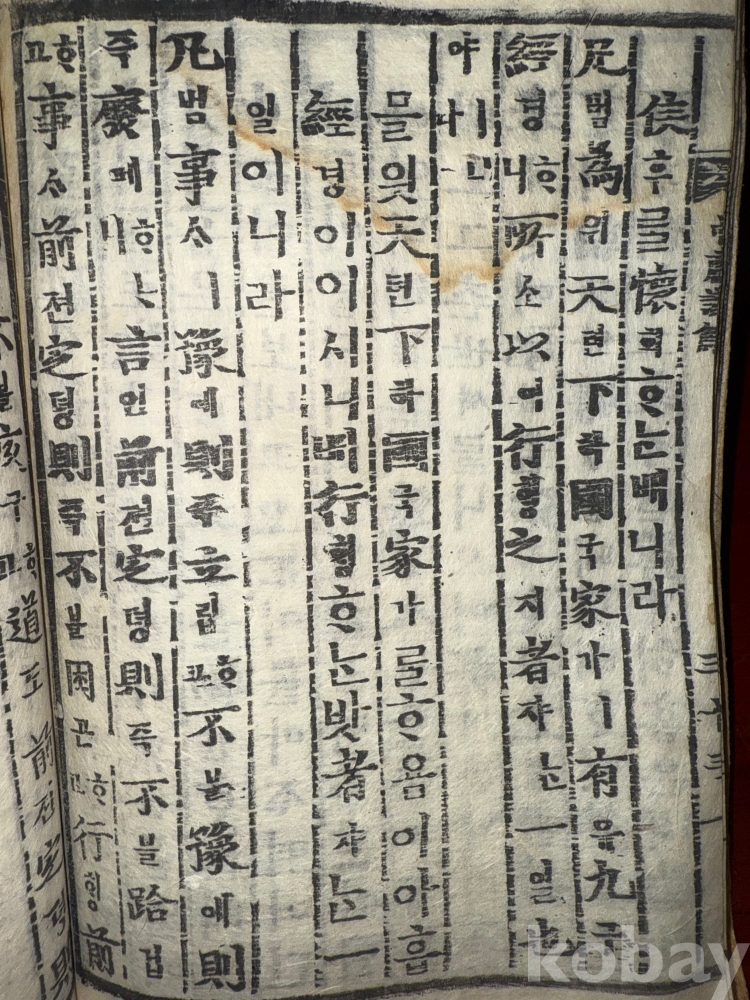 中庸諺解 三十三
侯후를懷회ᄒᆞᄂᆞᆫ배니라
凡범爲위天텬下하國국家가ㅣ有유九구
經경ᄒᆞ니所소以이行ᄒᆡᆼ之지者쟈ᄂᆞᆫ一일也
야ㅣ니라
믈읫天텬下하國국家가ᄅᆞᆯᄒᆞ욤이아홉
經경이이시니ᄡᅥ行ᄒᆡᆼᄒᆞᄂᆞᆫ밧者쟈ᄂᆞᆫ一
일이니라
凡범事ᄉᆞㅣ豫예則즉立립ᄒᆞ고不불豫예則
즉廢폐ᄒᆞᄂᆞ니言언前젼定뎡則즉不불跲겁
ᄒᆞ고事ᄉᆞ前젼定뎡則즉不불困곤ᄒᆞ고行ᄒᆡᆼ前
不불疚구ᄒᆞ고道도前젼定뎡則
kobay